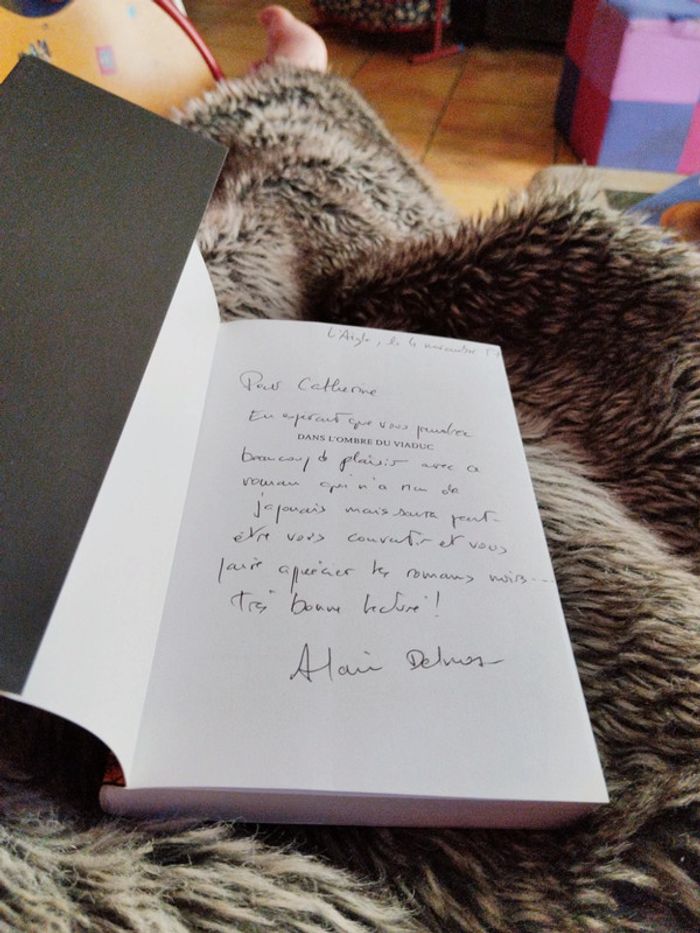 L'Aigle, le 4 novembre 17
Pour Catherine
En espérant que vous prendrez
DANS L'OMBRE DU VIADUC
beaucoup de plaisir avec ce
roman qui n'a rien de
japonais mais saura peut-
être vous convertir et vous
faire apprécier les romans noirs...
Très bonne lecture!
Alain Delmas